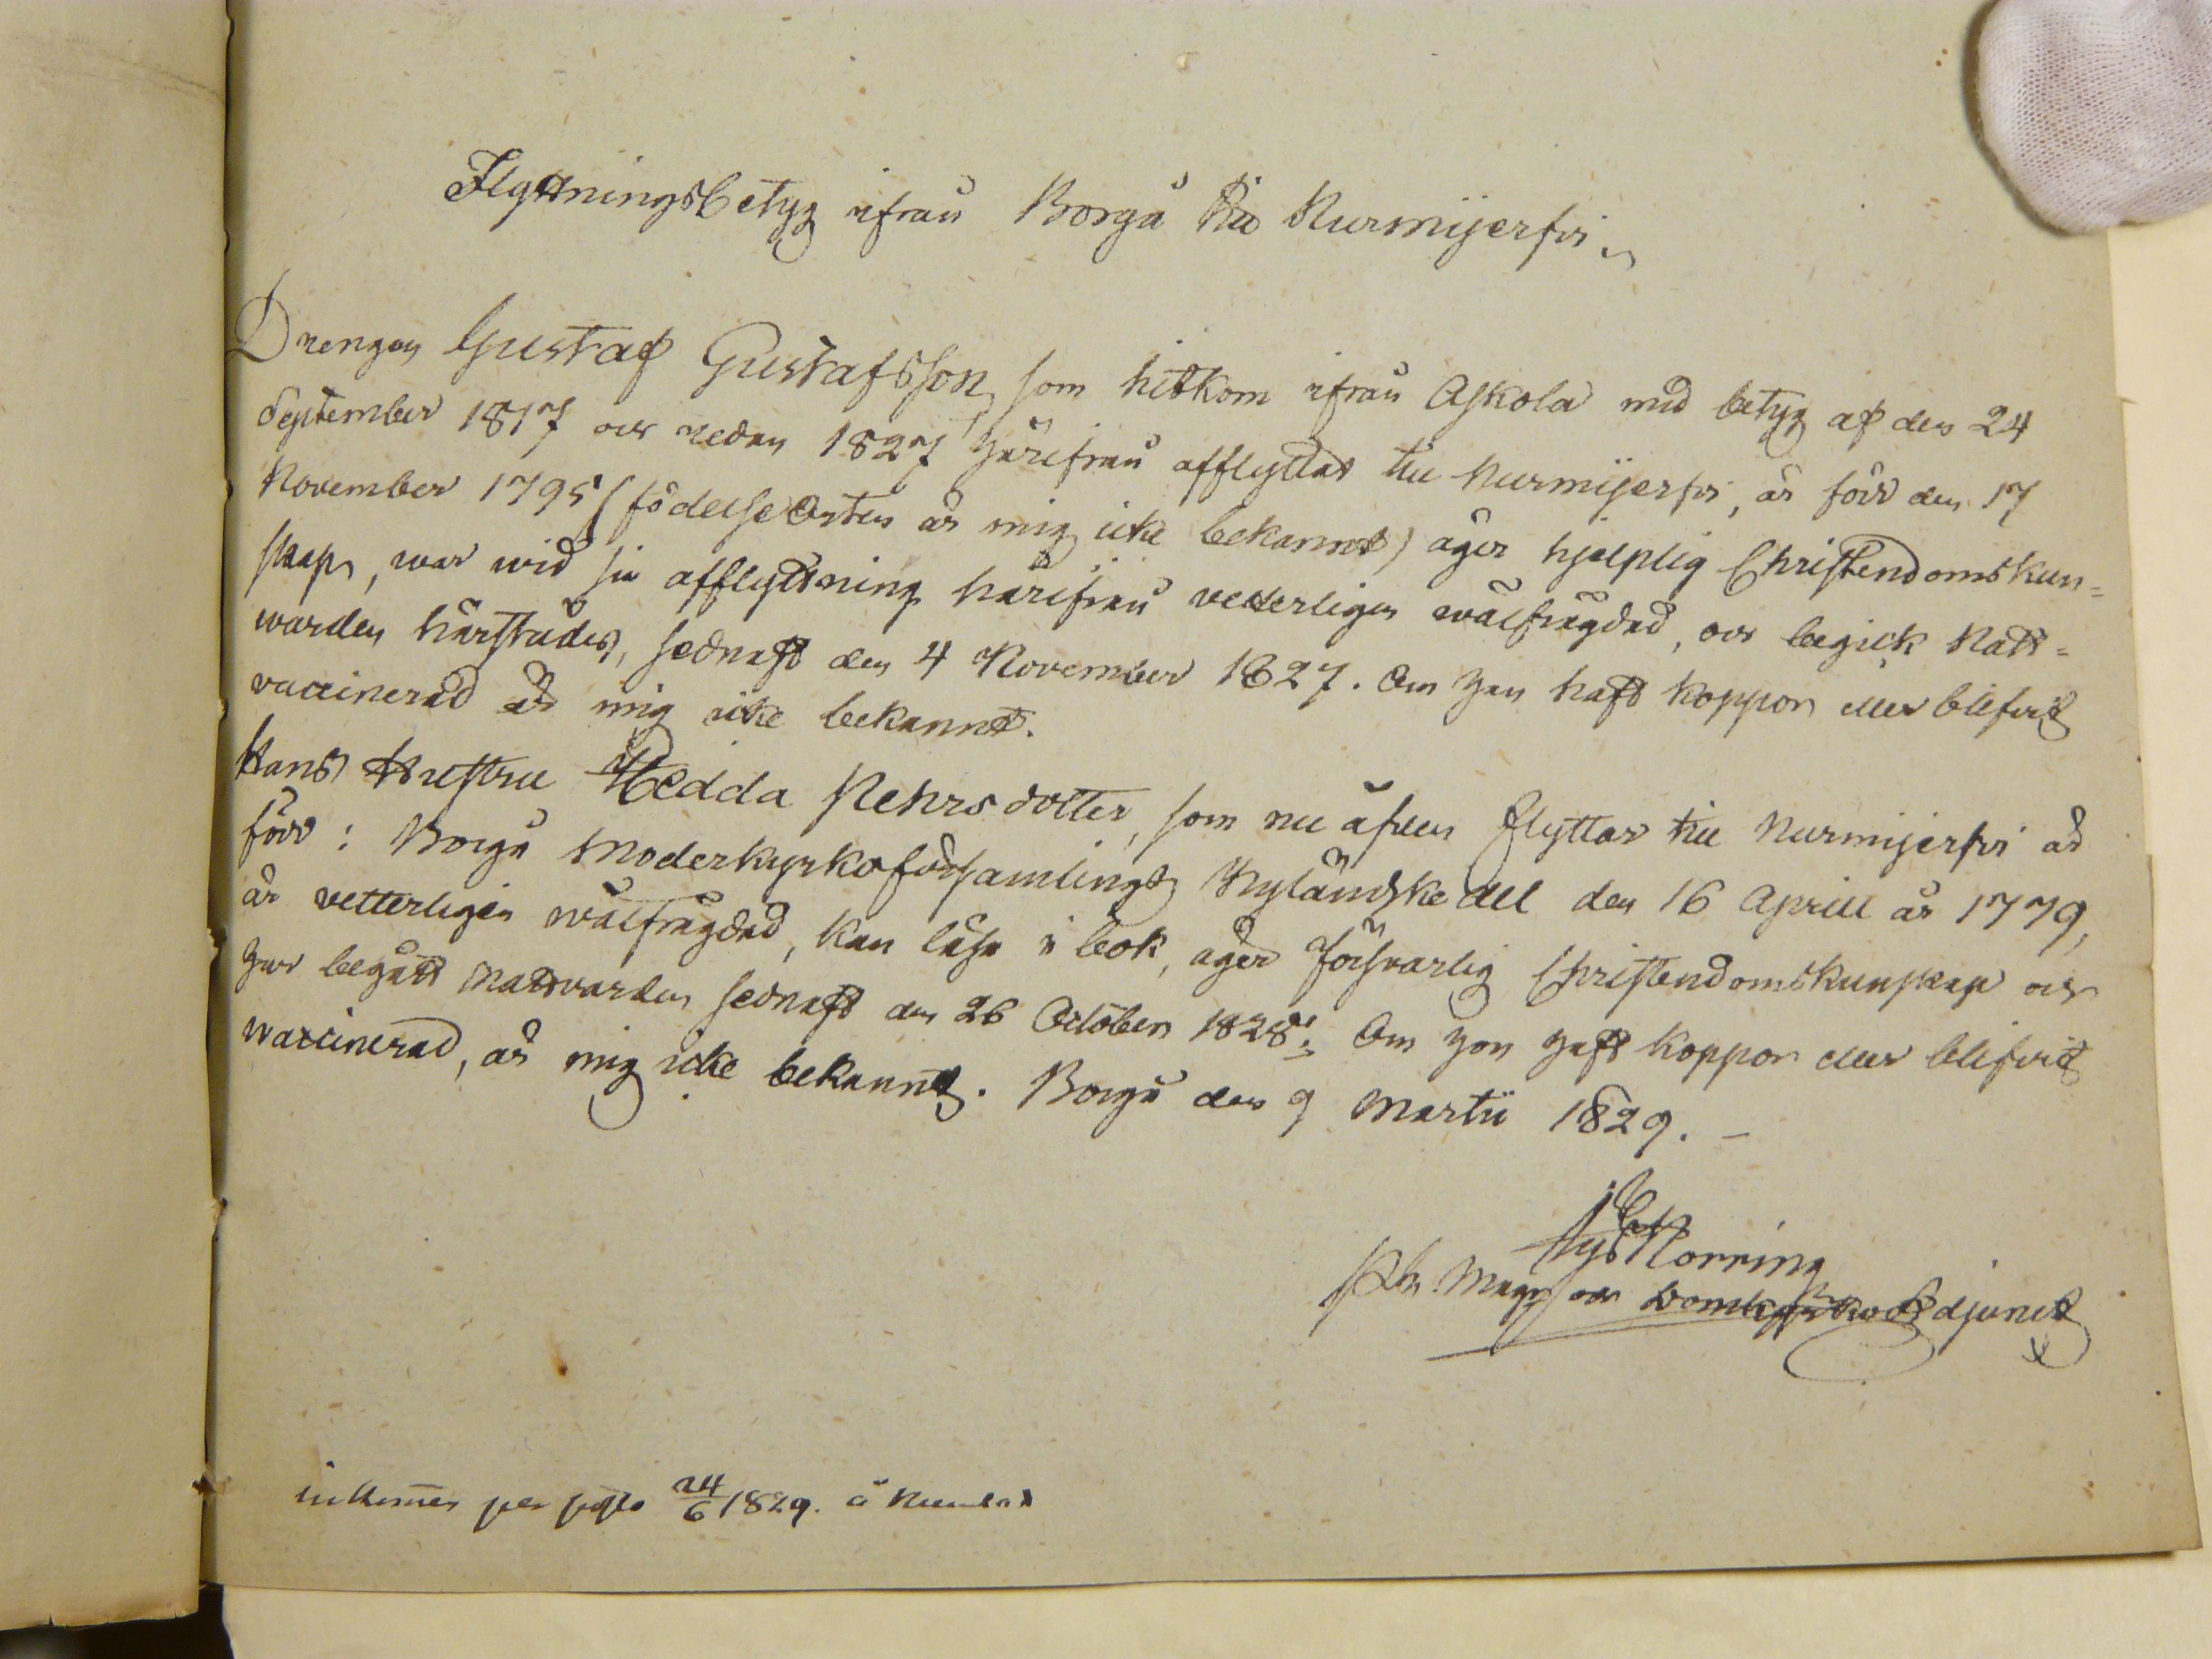 Flyttningsbetyg ifrån Borgå till Nurmijerfvi
Drengen Gustaf Gustafsson, som hitkom ifrån Askola med betyg af den 24
September 1817 och redan 1827 härifrån afflyttat till Nurmijerfvi, är född den 17
November 1795 (födelseorten är mig icke bekannt) äger hjelplig Christendomskun-
skap, war wid sin afflyttning härifrån vetterligen wälfrägdad, och begick Natt-
warden härstädes, sednast den 4 November 1827. Om han haft koppor eller blifvit
vaccinerad är mig icke bekannt.
Hans Hustru Hedda Pehrsdotter, som nu äfven flyttar till Nurmijerfvi är
född i Borgå Moderkyrkoförsamlings Nyländske del den 16 Aprill år 1779,
är vetterligen wälfrägdad, kan läsa i bok, äger försvarlig Christendomskunskap och
har begått Nattvarden sednast den 26 October 1828. Om hon haft koppor eller blifvit
vaccinerad, är mig icke bekannt. Borgå den 9 Martii 1829. –
Norring
Ph. Mag. och Domkyrko Adjunct
inkommen per posto 24/6 1829.